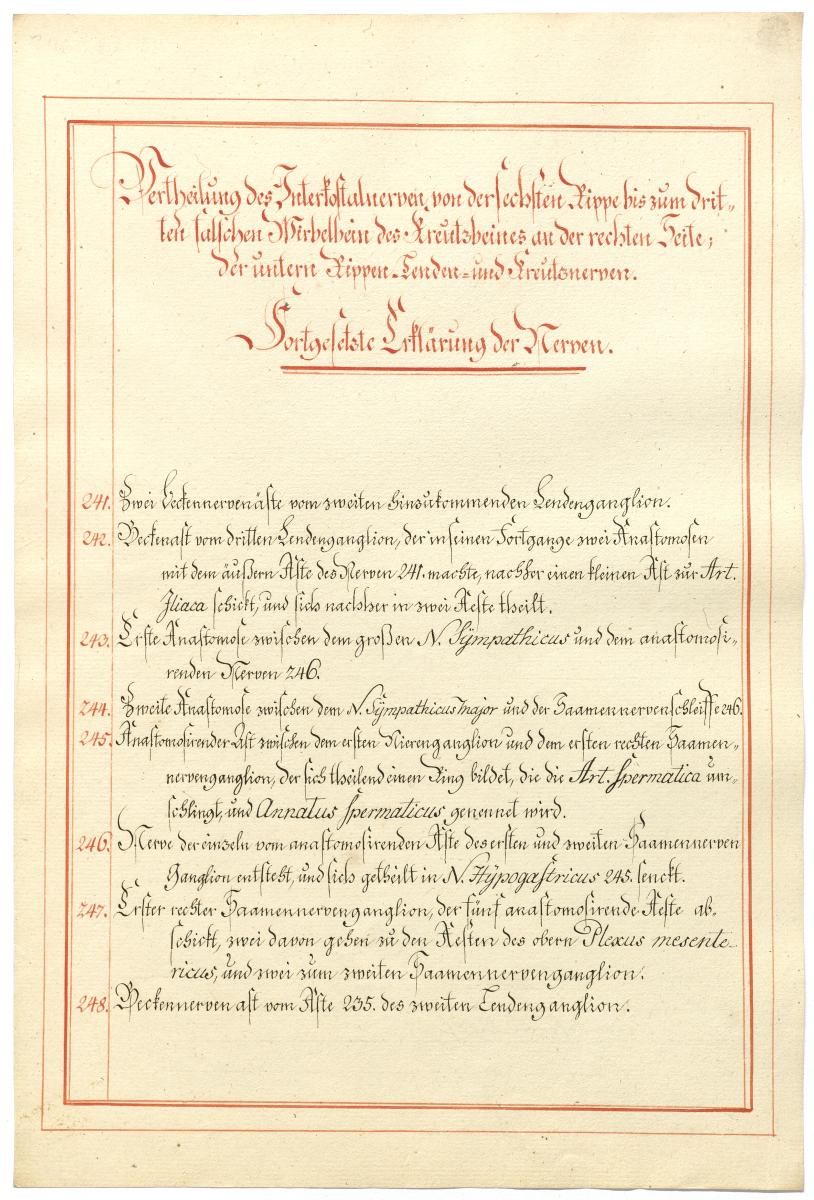 Vertheilung des Interkostalnerven, von der sechsten Rippe bis zum drit-
ten falschen Wirbelbein des Kreutzbeines an der rechten Seite;
der untern Rippen-Lenden- und Kreutznerven.
Fortgesetzte Erklärung der Nerven.
241. Zwei Beckennervenäste vom zweiten hinzukommenden Lendenganglion.
242. Beckenast vom dritten Lendenganglion, der in seinen Fortgange zwei Anastomosen
mit dem äußern Aste des Nerven 241. machte, nachher einen kleinen Ast zur Art.
Iliaca schickt, und sich nachher in zwei Aeste theilt.
243. Erste Anastomose zwischen dem großen N. Sÿmpathicus und dem anastomosi-
renden Nerven 246.
244. Zweite Anastomose zwischen dem N. Sÿmpathicus major und der Saamennervenschleiffe 246.
245. Anastomosirender Ast zwischen dem ersten Nierenganglion und dem ersten rechten Saamen-
nervenganglion, der sich theilend einen Ring bildet, die die Art. Spermatica um-
schlingt, und Annatus Spermaticus genennet wird.
246. Nerve der einzeln vom anastomosirenden Aste des ersten und zweiten Saamennerven
Ganglion entsteht, und sich getheilt in N. Hÿpogastricus 245. senckt.
247. Erster rechter Saamennervenganglion, der fünf anastomosirende Aeste ab-
schickt, zwei davon gehen zu den Aesten des obern Plexus mesente-
ricus, und zwei zum zweiten Saamennervenganglion.
248. Beckennerven ast vom Aste 235. des zweiten Lendenganglion.